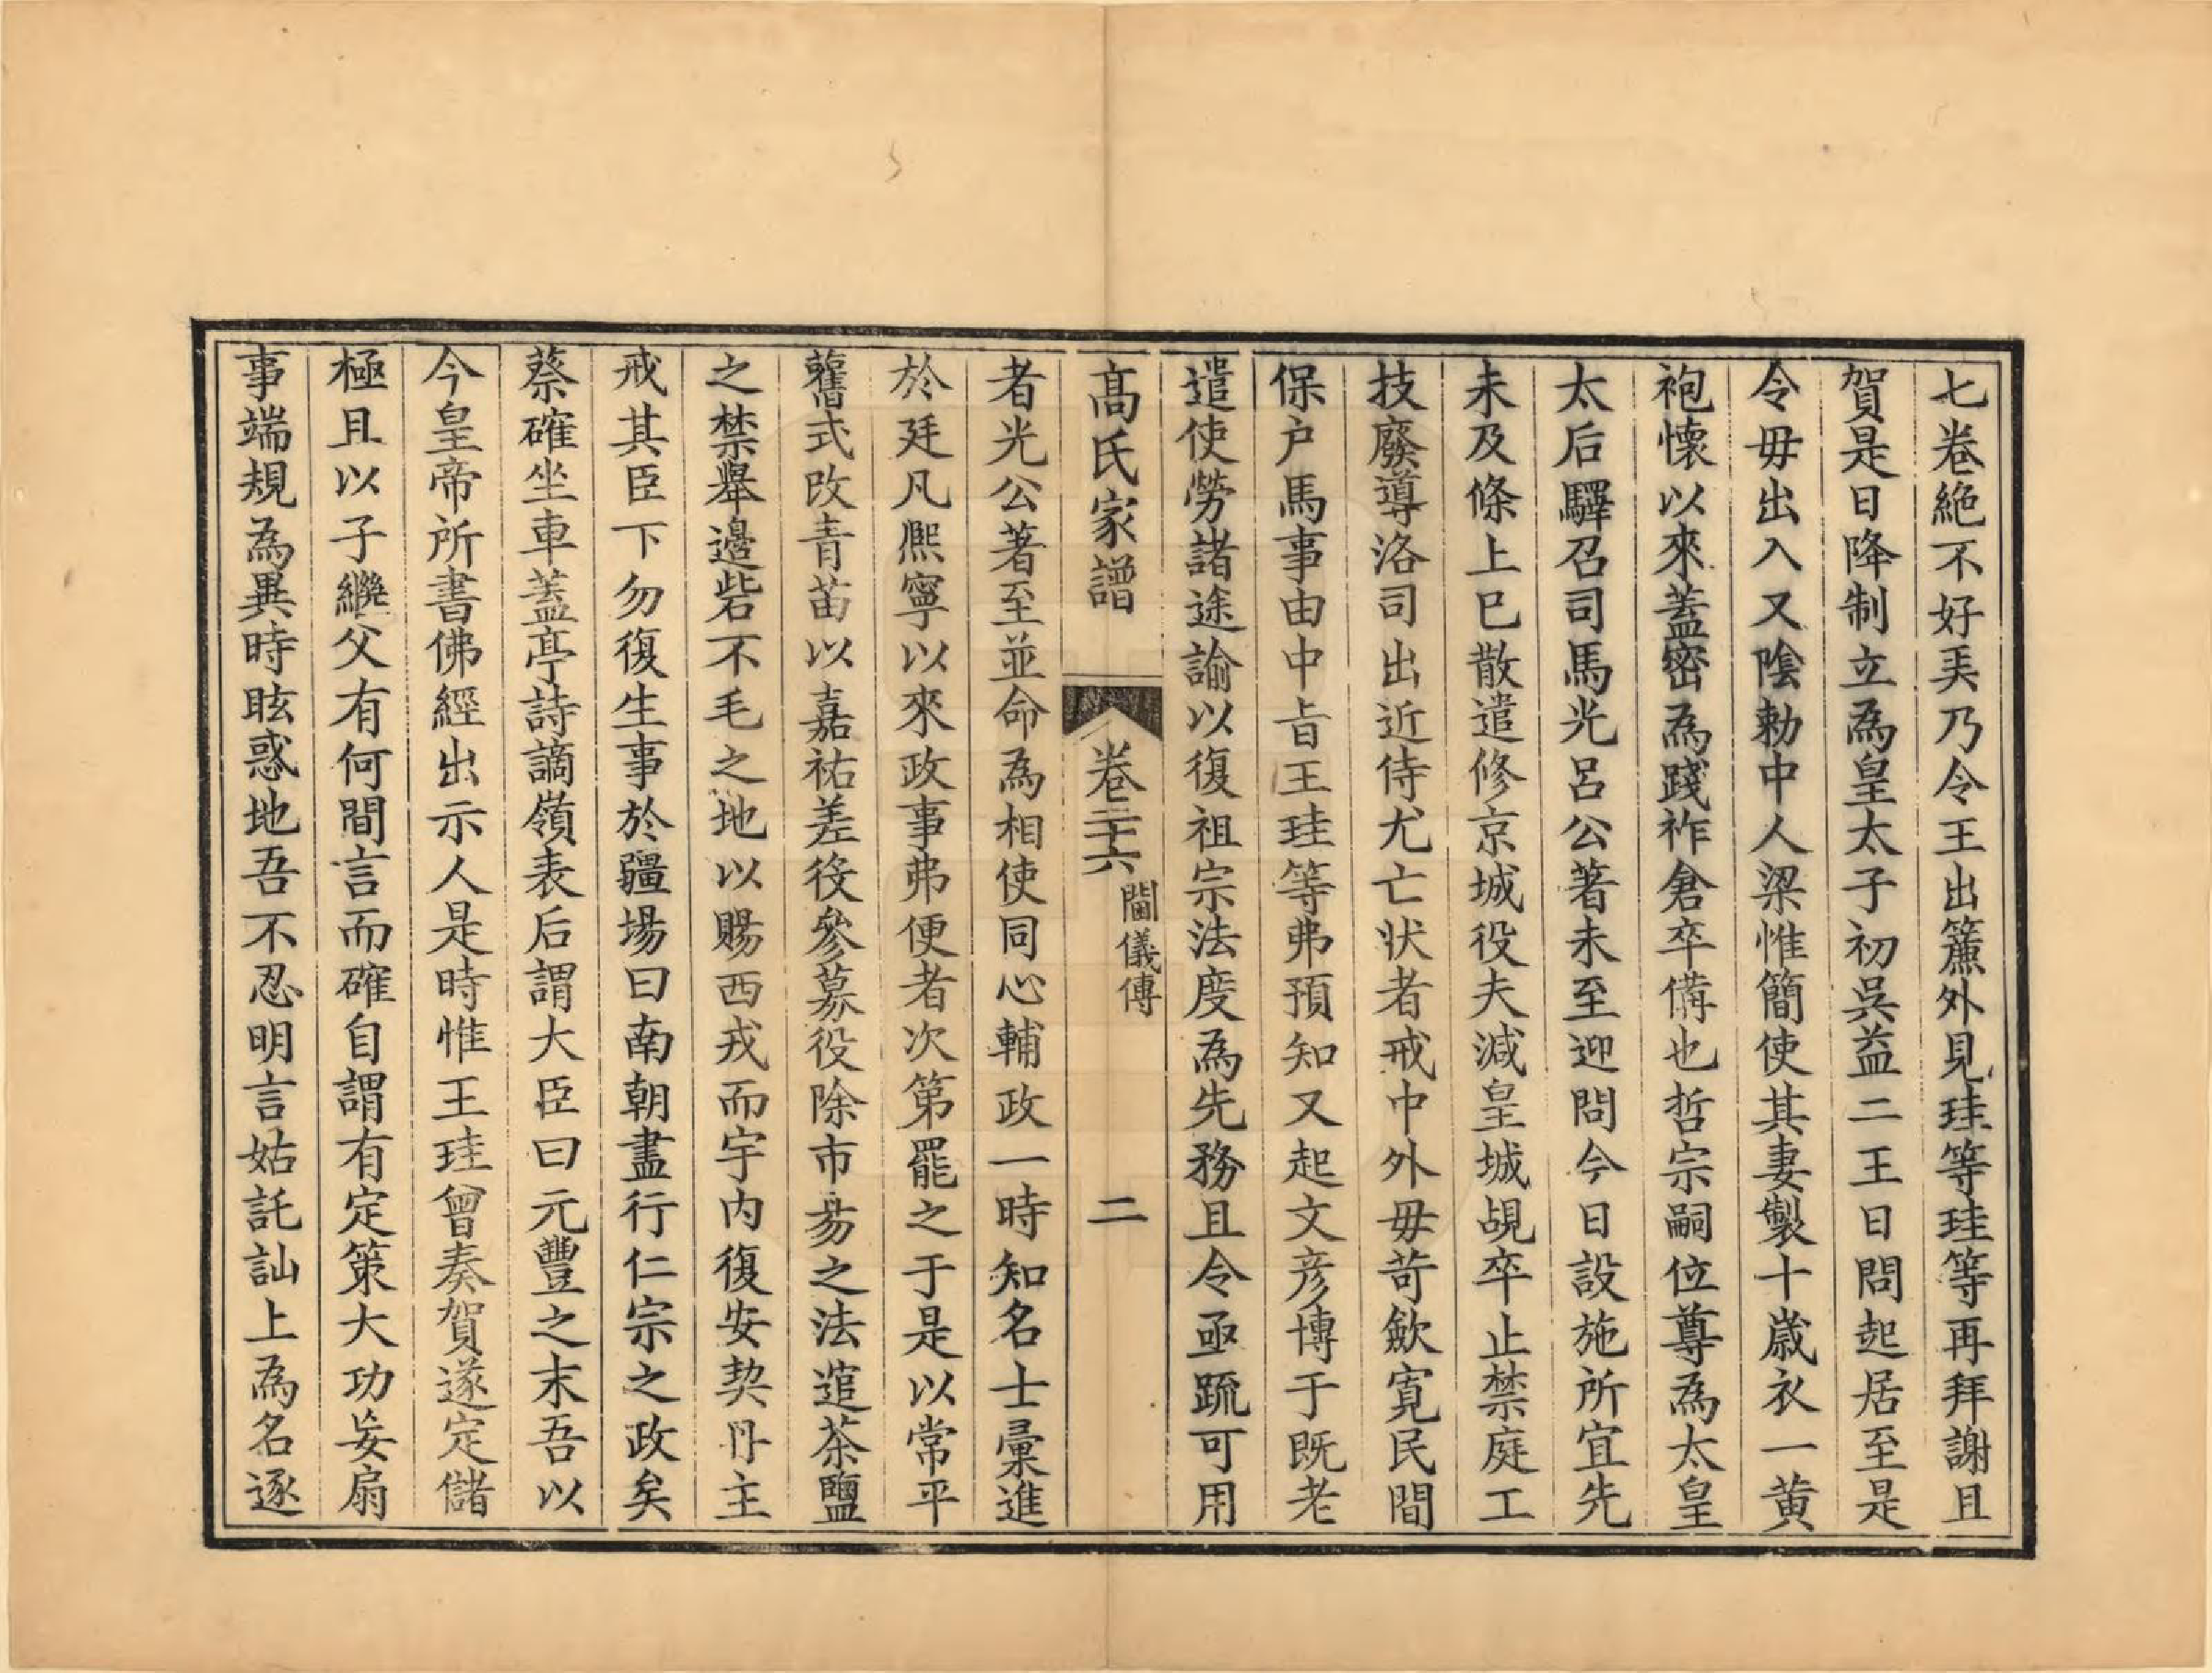 七卷絶不好美乃令王出簾外見珪等珪等再拜謝且
賀是日降制立為皇太子初吳益二王日問起居至是
令毋出入又陰勅中人梁惟簡使其妻製十歲衣一黃
袍懷以來蓋密為踐祚倉卒備也哲宗嗣位尊為太皇
太后驛召司馬光呂公著未至迎問今日設施所宜先
未及條上已散遣修京城役夫減皇城覘卒止禁庭工
技廢導洛司出近侍尤亡狀者戒中外毋苛斂寬民間
保户馬事由中旨王珪等弗預知又起文彦博于既老
遣使勞諸途諭以復祖宗法度為先務且令亟疏可用
髙氏家譜 卷二十六 閫儀傳 二
者光公著至並命為相使同心輔政一時知名士彙進
於廷凡熈寧以來政事弗便者次第罷之于是以常平
舊式改青苗以嘉祐差役參募役除市易之法逭茶鹽
之禁舉邊砦不毛之地以賜西戎而宇内復安契丹主
戒其臣下勿復生事於疆場曰南朝盡行仁宗之政矣
蔡確坐車蓋亭詩謫嶺表后謂大臣曰元豐之末吾以
今皇帝所書佛經出示人是時惟王珪曾奏賀遂定儲
極且以子繼父有何間言而確自謂有定策大功妄扇
事端規為異時眩惑地吾不忍明言姑託訕上為名逐